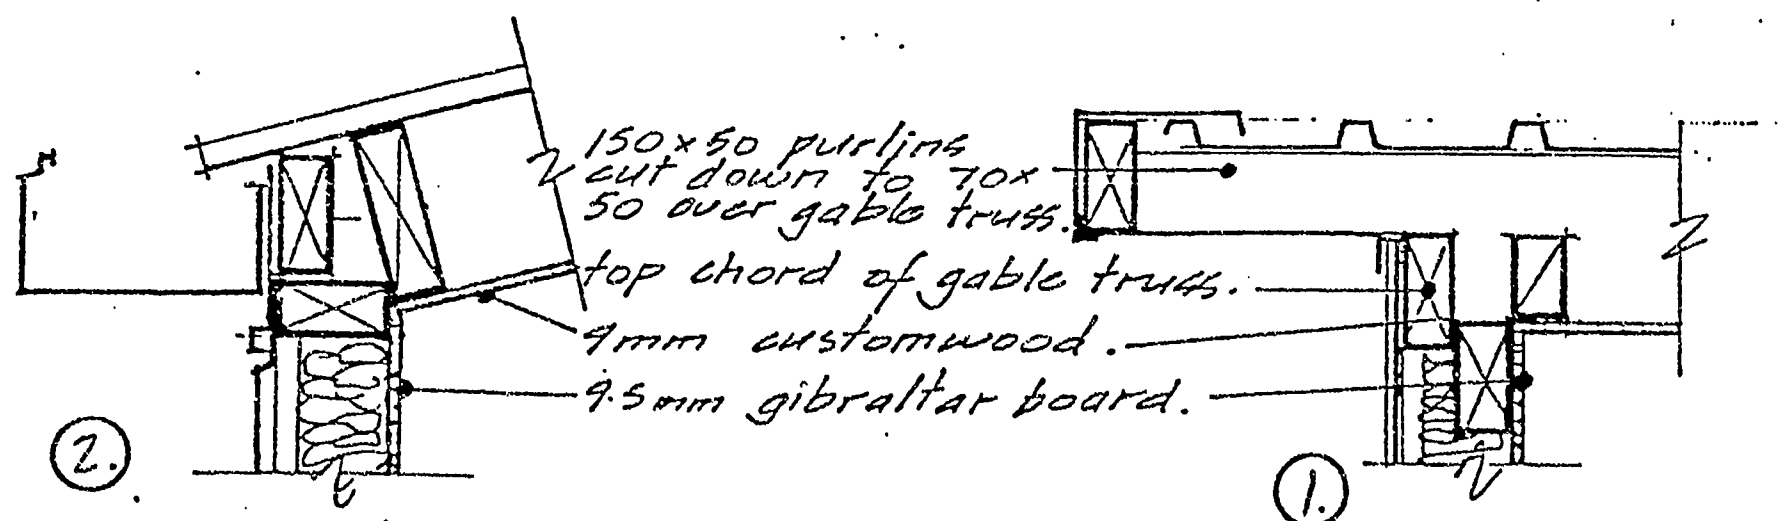 150x50 purlins
cut down to 70x
50 over gable truss.
top chord of gable truss.
9mm customwood.
9.5mm gibraltar board.
2.
1.